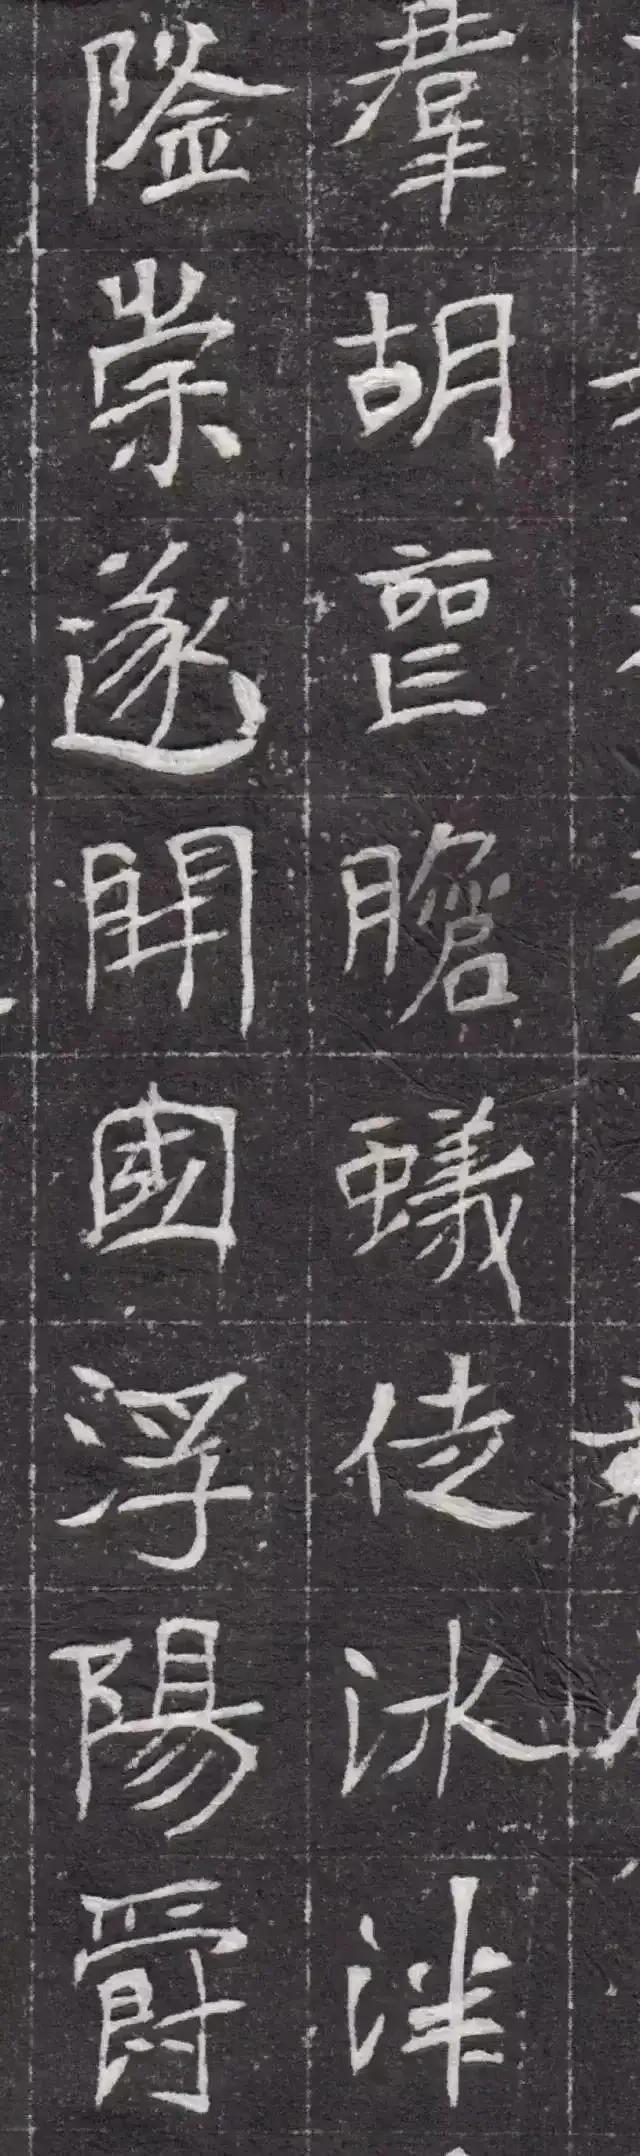 羣胡喪膽蟻徒冰泮
隆崇遂開國浮陽爵